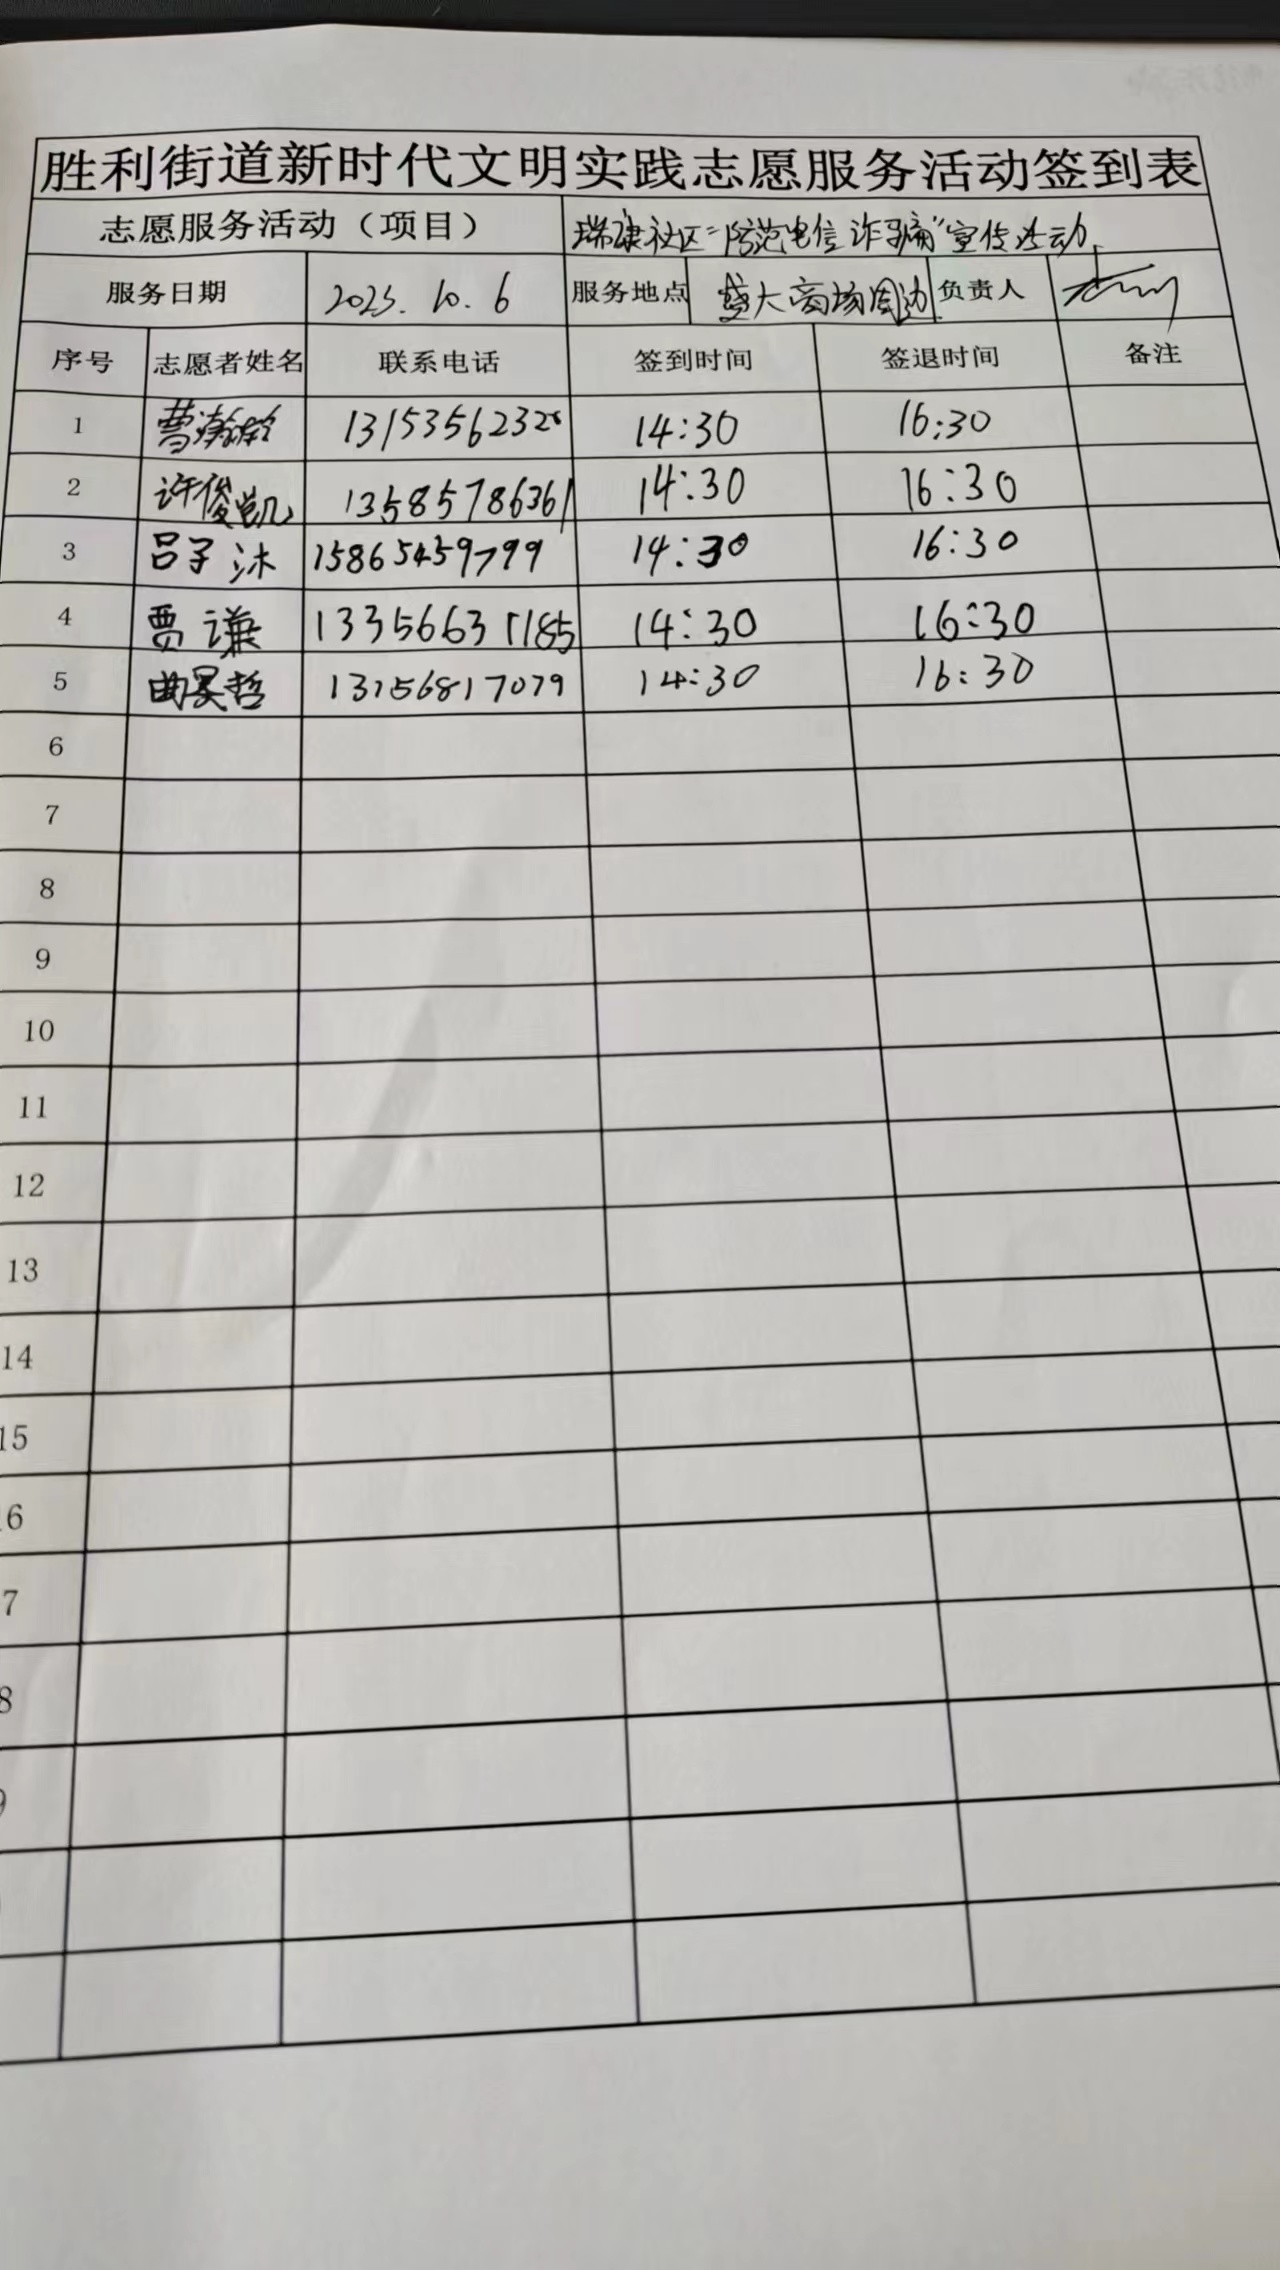 胜利街道新时代文明实践志愿服务活动签到表
志愿服务活动（项目） 瑞康社区“防范电信诈骗”宣传活动
服务日期 2025.10.6 服务地点 盛大商场周边 负责人
序号 志愿者姓名 联系电话 签到时间 签退时间 备注
1 曹 131535623 14:30 16:30
2 许俊凯 13585786361 14:30 16:30
3 吕子沐 15865459799 14:30 16:30
4 贾谦 13356631185 14:30 16:30
5 曲昊哲 13156817079 14:30 16:30
6
7
8
9
10
11
12
13
14
15
6
7
8
9